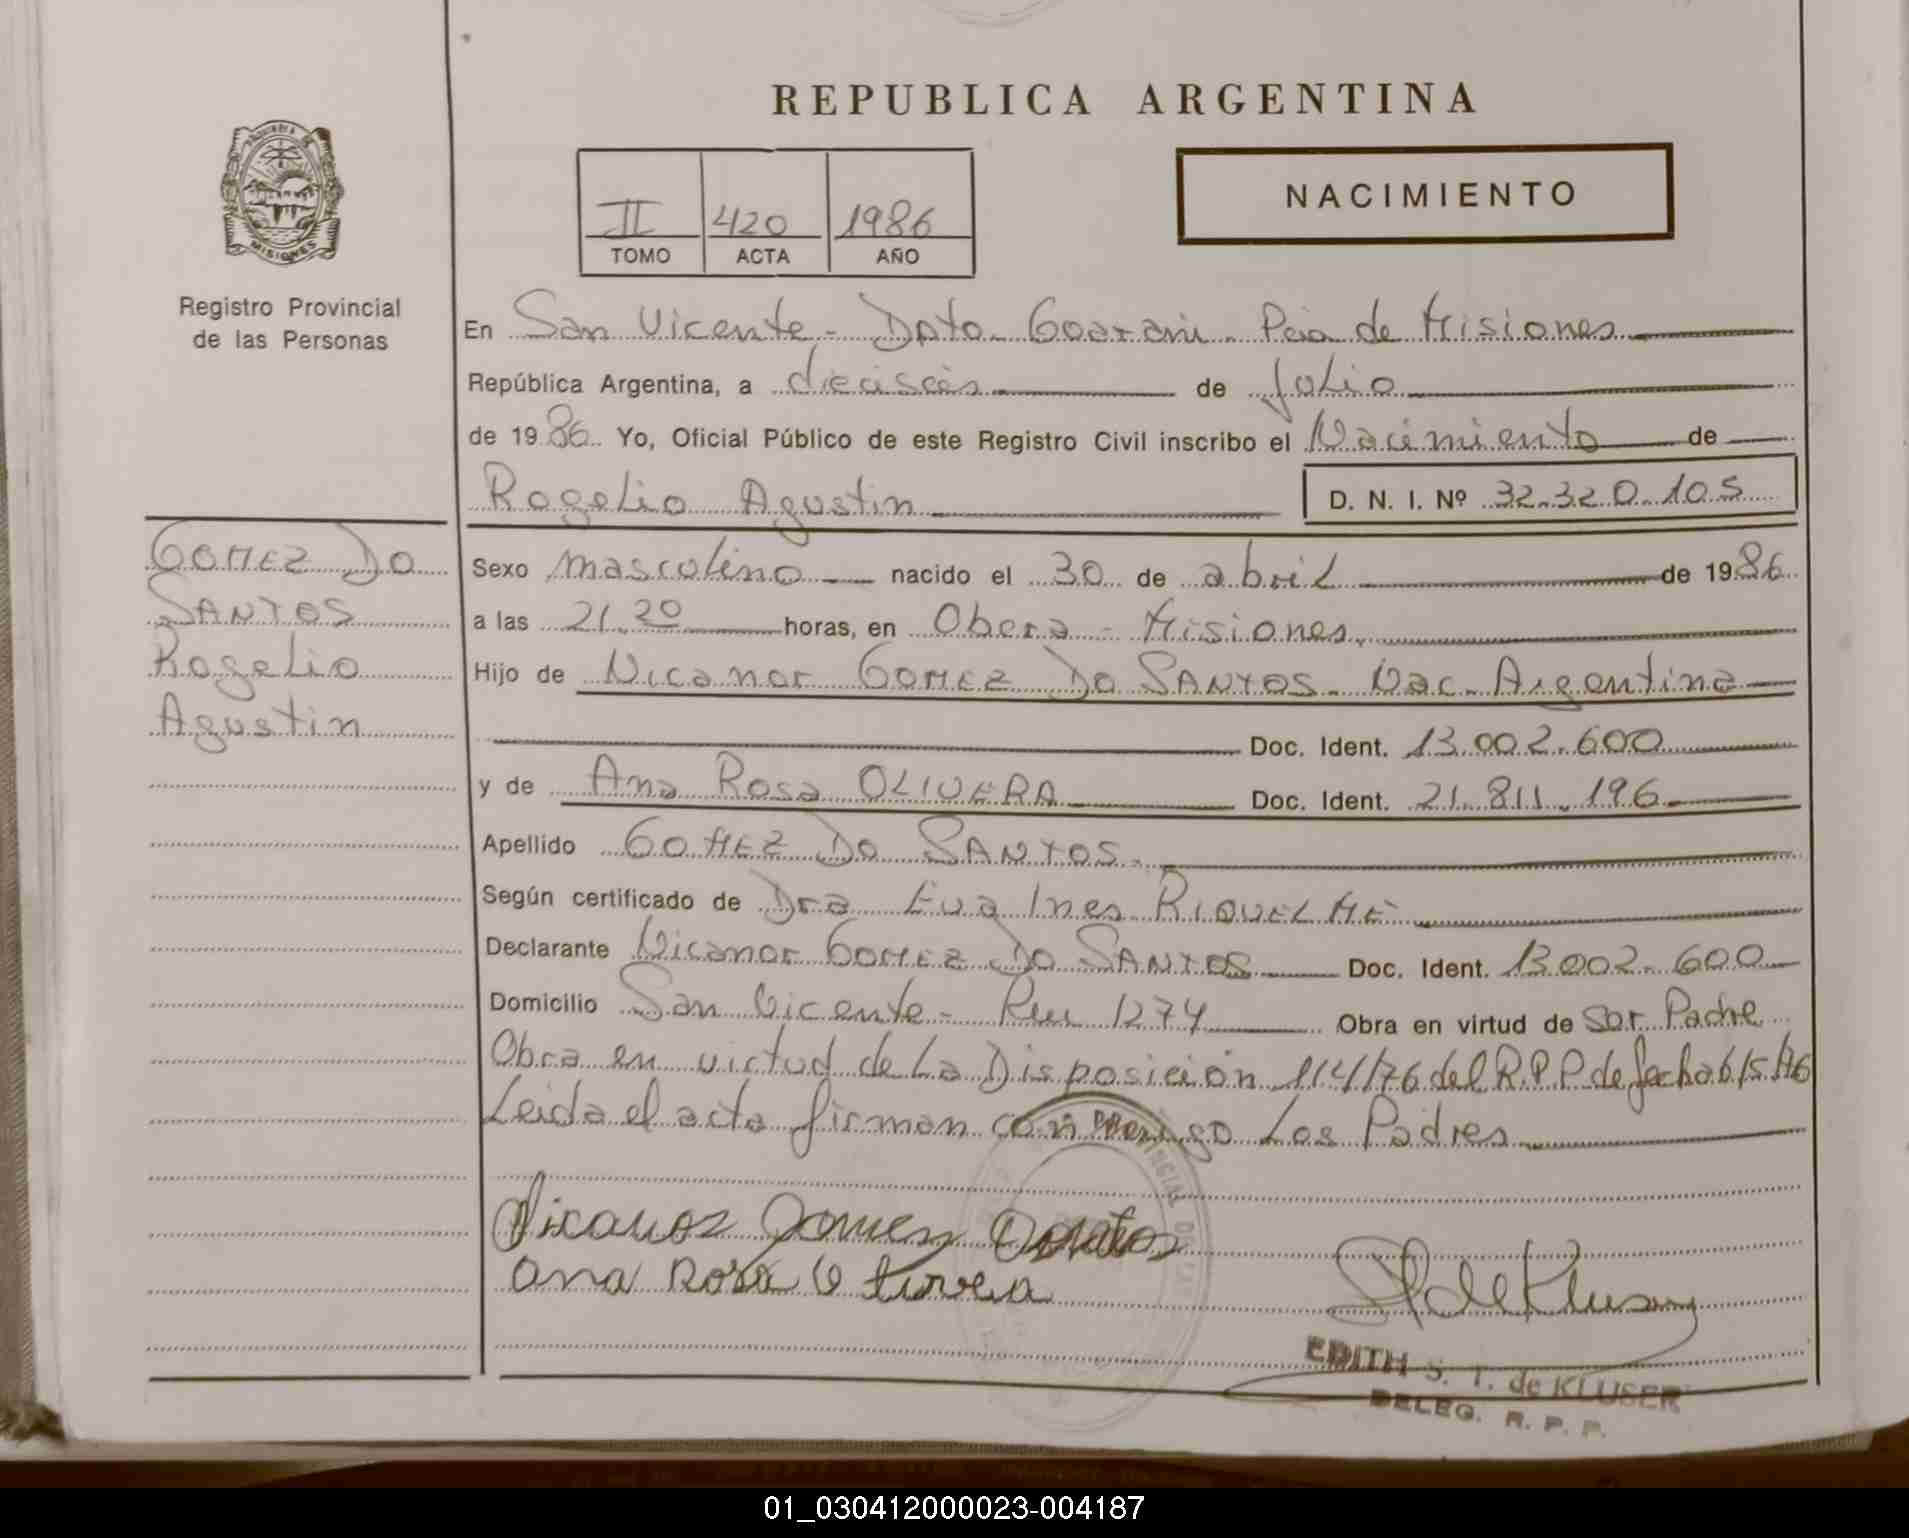 REPUBLICA ARGENTINA
NACIMIENTO
II 420 1986
TOMO ACTA AÑO
MISIONES
Registro Provincial
de las Personas
GOMEZ DO
SANTOS
Rogelio
Agustin
En San Vicente - Dpto - Guarani - Pcia de Misiones
República Argentina, a dieciseis de Julio
de 1986 Yo, Oficial Público de este Registro Civil inscribo el Nacimiento de
Rogelio Agustin D. N. I. Nº 32.320.105
Sexo masculino nacido el 30 de abril de 1986
a las 21.20 horas, en Obera - Misiones.
Hijo de Nicanor GOMEZ DO SANTOS - Nac. Argentina
Doc. Ident. 13.002.600
y de Ana Rosa OLIVERA Doc. Ident. 21.811.196
Apellido GOMEZ DO SANTOS.
Según certificado de Dra Eva Ines RIQUELME
Declarante Nicanor GOMEZ DO SANTOS Doc. Ident. 13.002.600
Domicilio San Vicente - Ruu 1274 Obra en virtud de Ser Padre
Obra en virtud de La Disposición 114/76 del R.P.P de fecha 6/5/76
Leida el acta firman conmigo Los Padres
Nicanor Gomez
Ana Rosa Olivera
EDITH S. T. de KLUSER
DELEG. R. P. P.
01_030412000023-004187